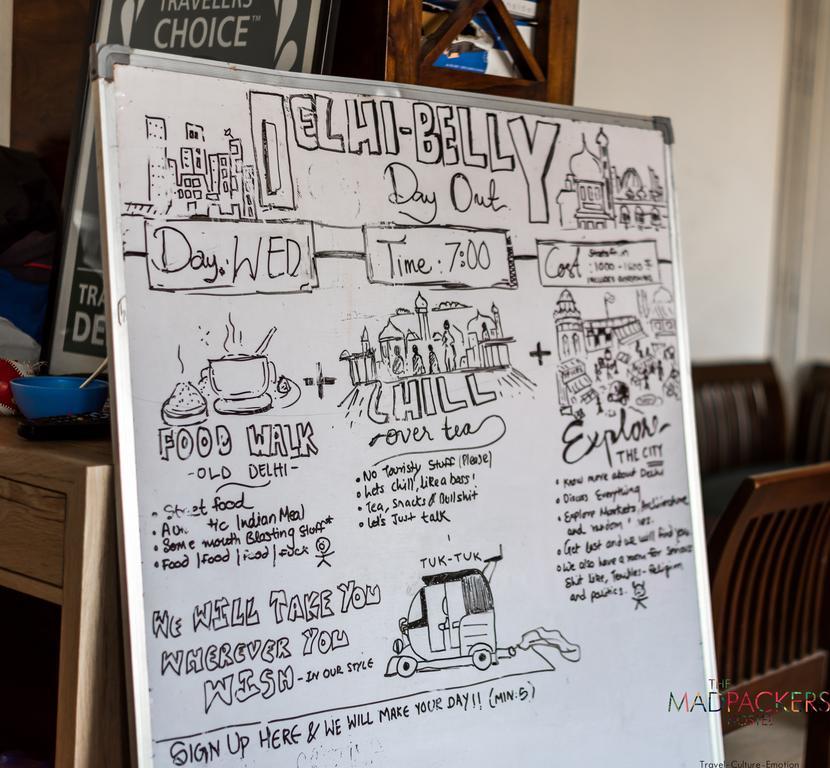 TRAVELERS'
CHOICE™
TRA
DE
DELHI-BELLY
Day Out
Day: WED
Time: 7:00
Cost
: 1000 - 1500 ₹
FOOD WALK
-OLD DELHI-
• Street food
• Indian Meal
• Some mouth Blasting Stuff*
• Food / food / food / fuck
+
CHILL
over tea
• No Touristy Stuff (Please)
• Lets chill, Like a boss!
• Tea, Snacks & Bullshit
• Let's Just talk
+
Explore
THE CITY
• Know more about Delhi
• Discuss Everything
• Explore Markets, Architecture
and random
• Get Lost and we will find you
• We also have a menu for Serious
Shit Like, Troubles - Religion
and politics.
TUK-TUK
WE WILL TAKE YOU
WHEREVER YOU
WISH - IN OUR STYLE
SIGN UP HERE & WE WILL MAKE YOUR DAY!! (MIN:5)
THE
MADPACKERS
HOSTEL
Travel-Culture-Emotion